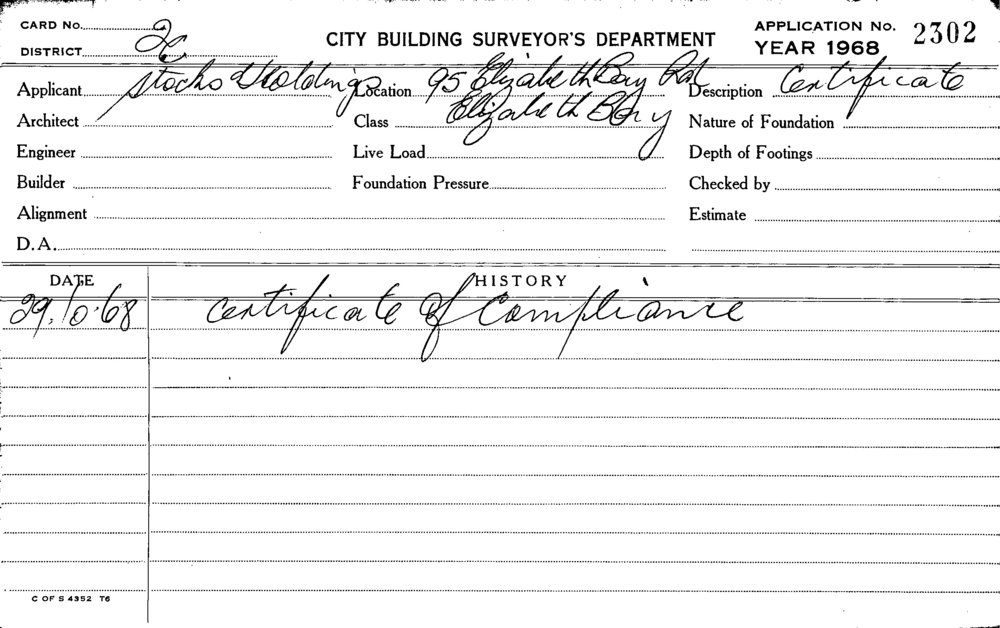 CARD No.
DISTRICT 2C
CITY BUILDING SURVEYOR'S DEPARTMENT
APPLICATION No. 2302
YEAR 1968
Applicant Stocks & Holdings Location 95 Elizabeth Bay Rd Description Certificate
Architect Class Elizabeth Bay Nature of Foundation
Engineer Live Load Depth of Footings
Builder Foundation Pressure Checked by
Alignment Estimate
D.A.
DATE HISTORY
29.10.68 Certificate of Compliance
C OF S 4352 T6